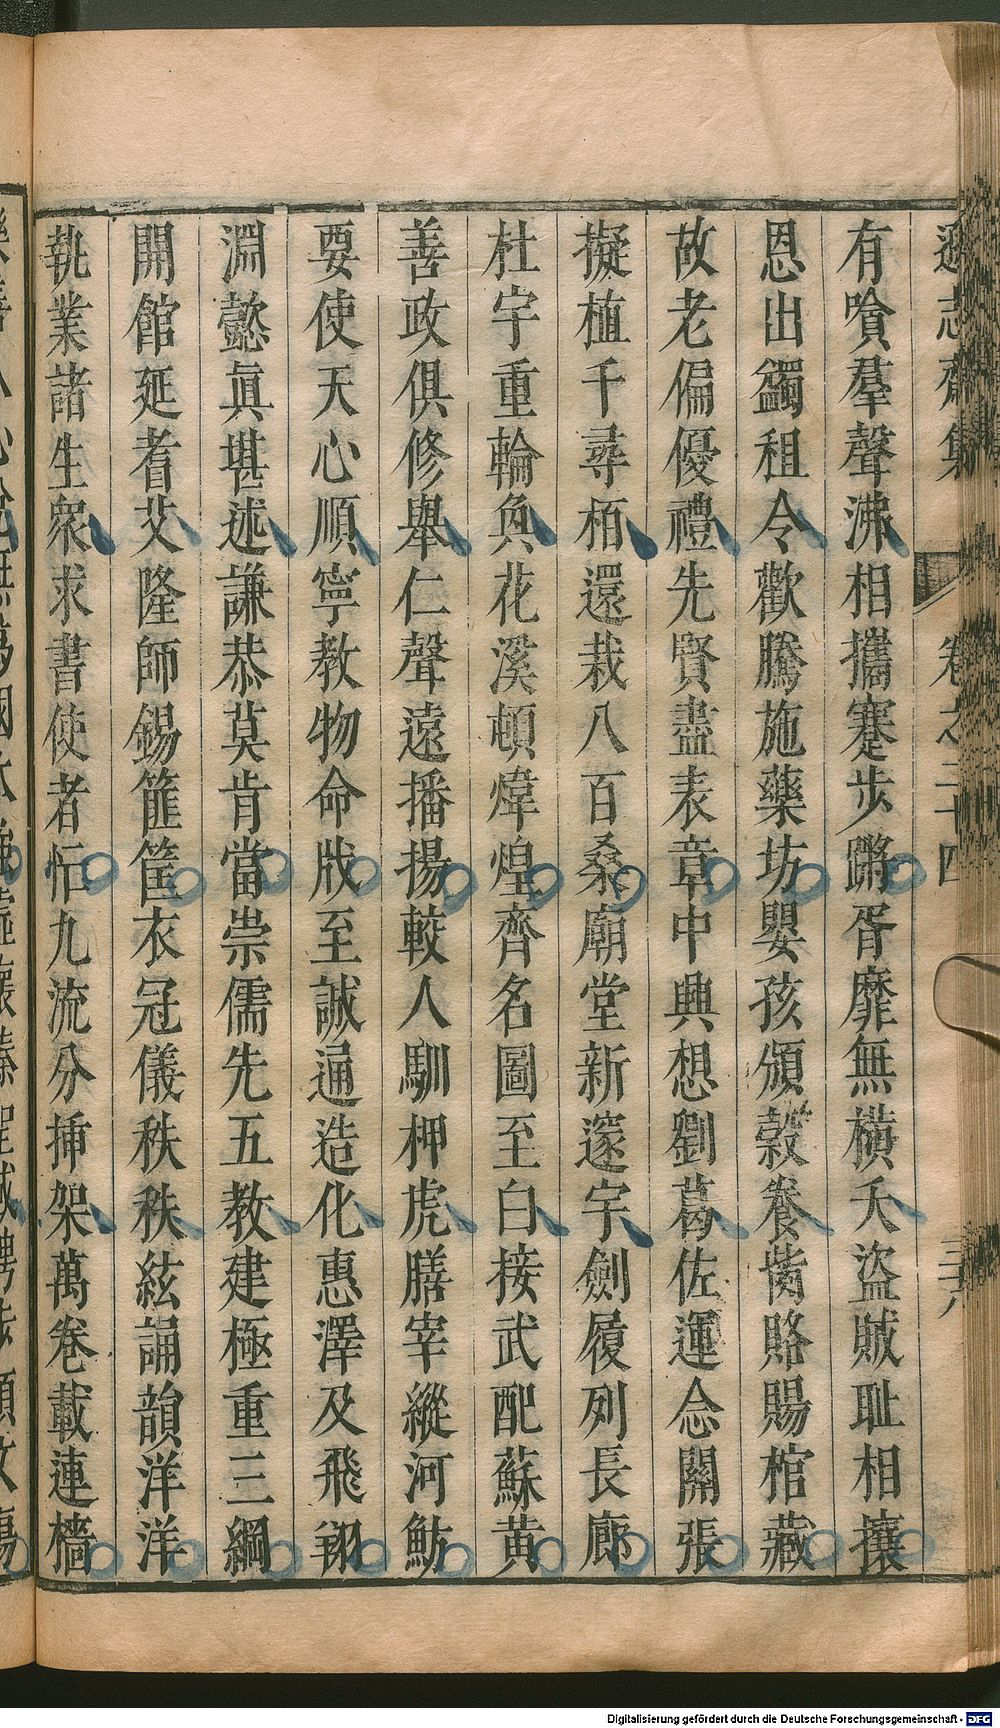 遜志齋集 卷之二十四
有喰羣聲沸相攜蹇步蹡胥靡無橫夭盜賊耻相攘
恩出蠲租令歡騰施藥坊嬰孩頒穀養胔賂賜棺藏
故老偏優禮先賢盡表章中興想劉葛佐運念關張
擬植千尋栢還栽八百桑廟堂新邃宇劍履列長廊
杜宇重輪奐花溪頓煒煌齊名圖至白接武配蘇黃
善政俱修舉仁聲遠播揚較人馴柙虎膳宰縱河魴
要使天心順寧教物命戕至誠通造化惠澤及飛翔
淵懿眞堪述謙恭莫肯當崇儒先五教建極重三綱
開館延耆艾隆師錫篚筐衣冠儀秩秩絃誦韻洋洋
執業諸生衆求書使者忙九流分揷架萬卷載連檣
Digitalisierung gefördert durch die Deutsche Forschungsgemeinschaft - DFG